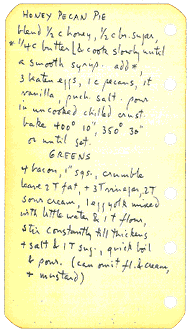 HONEY PECAN PIE
blend ½ c honey, ½ c br. sugar,
* ¼ c butter & cook slowly until
a smooth syrup. add *,
3 beaten eggs, 1 c pecans, 1t
vanilla, pnch. salt. pour
in uncooked chilled crust.
bake 400° 10", 350° 30"
or until set.
GREENS
4 bacon, 1" sqs., crumble
leave 2 T fat, + 3T vinegar, 2T
sour cream, 1 egg yolk mixed
with little water & 1 t flour,
stir constantly till thickens
+ salt & 1 T sug., quick boil
& pour. (can omit fl. & cream,
+ mustard)